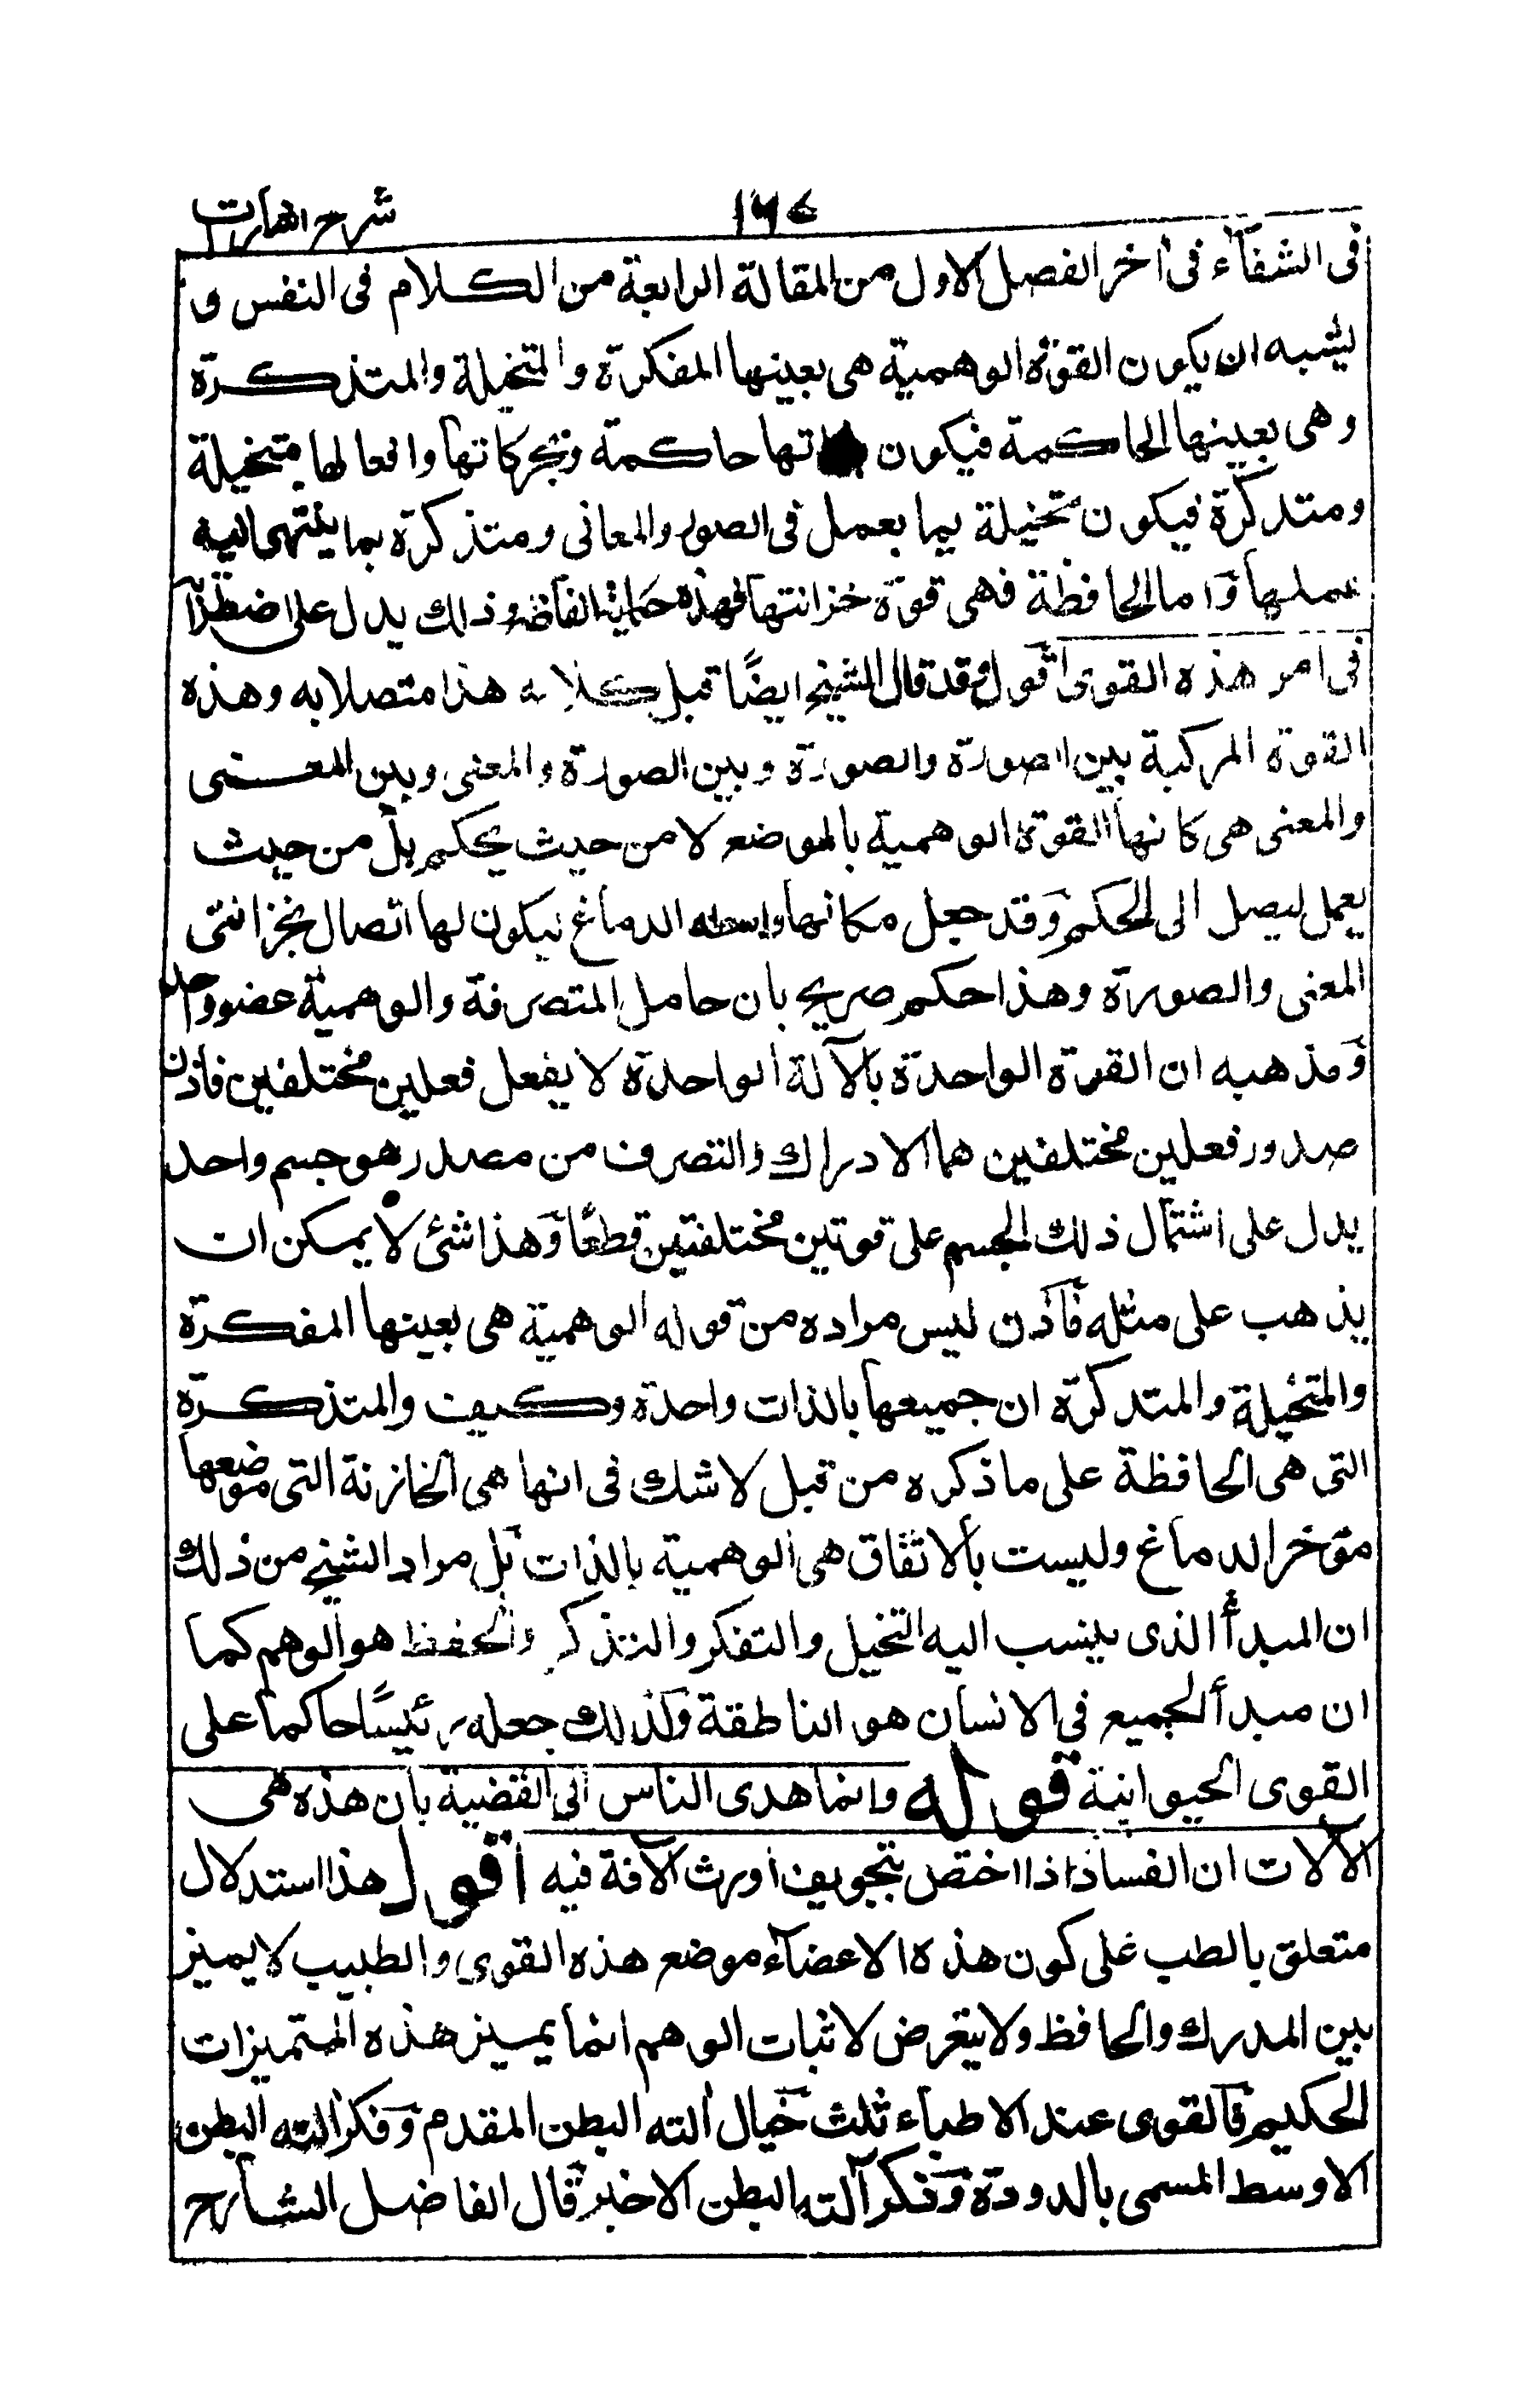 شرح اشارات ١٦٤
فى الشفآء فى اخر الفصل الاول من المقالة الرابعة من الكلام فى النفس و
يشبه ان يكون القوة الوهمية هى بعينها المفكرة والمتخيلة والمتذكرة
وهى بعينها الحاكمة فيكون تها حاكمة وبحركاتها وافعالها متخيلة
ومتذكرة فيكون متخيلة بما يعمل فى الصور والمعانى ومتذكرة بما ينتهى اليه
عملها وَاما الحافظة فهى قوة خزانتها فهذه حكاية الفاظه وذلك يدل على اضطرابٍ
فى امر هذه القوى اَقول وقد قال الشيخ ايضًا قبل كلامه هذا متصلا به وهذه
القوة المركبة بين الصورة والصورة وبين الصورة والمعنى وبين المعنى
والمعنى هى كانها القوة الوهمية بالموضع لا من حيث يحكم بل من حيث
يعمل ليصل الى الحكم وَقد جعل مكانها واسطه الدماغ ليكون لها اتصال بخزانتى
المعنى والصورة وهذا حكم صريح بان حامل المتصرفة والوهمية عضو واحد
وَمذهبه ان القوة الواحدة بالآلة الواحدة لا يفعل فعلين مختلفين فاذن
صدور فعلين مختلفين هما الادراك والتصرف من مصدر هو جسم واحد
يدل على اشتمال ذلك الجسم على قوتين مختلفتين قطعًا وَهذا شئ لا يمكن ان
يذهب على مثله فَاذن ليس مراده من قوله الوهمية هى بعينها المفكرة
والمتخيلة والمتذكرة ان جميعها بالذات واحدة وكيف والمتذكرة
التى هى الحافظة على ما ذكره من قبل لا شك فى انها هى الخازنة التى موضعها
مؤخر الدماغ وليست بالاتفاق هى الوهمية بالذات بَل مراد الشيخ من ذلك
ان المبدأ الذى ينسب اليه التخيل والتفكر والتذكر والحفظ هو الوهم كما
ان مبدأ الجميع في الانسان هو الناطقة وَلذلك جعله رئيسًا حاكما على
القوى الحيوانية قوله وانما هدى الناس الى القضية بان هذه هى
الآلات ان الفساد اذا اختص بتجويف اورث الآفة فيه اقول هذا استدلال
متعلق بالطب على كون هذه الاعضآء موضع هذه القوى والطبيب لا يميز
بين المدرك والحافظ ولا يتعرض لاثبات الوهم انما يميز هذه المتميزات
الحكيم فَالقوى عند الاطباء ثلث خَيال الته البطن المقدم وَفكر الته البطن
الاوسط المسمى بالدودة وَذكر آلته البطن الاخير قَال الفاضل الشارح